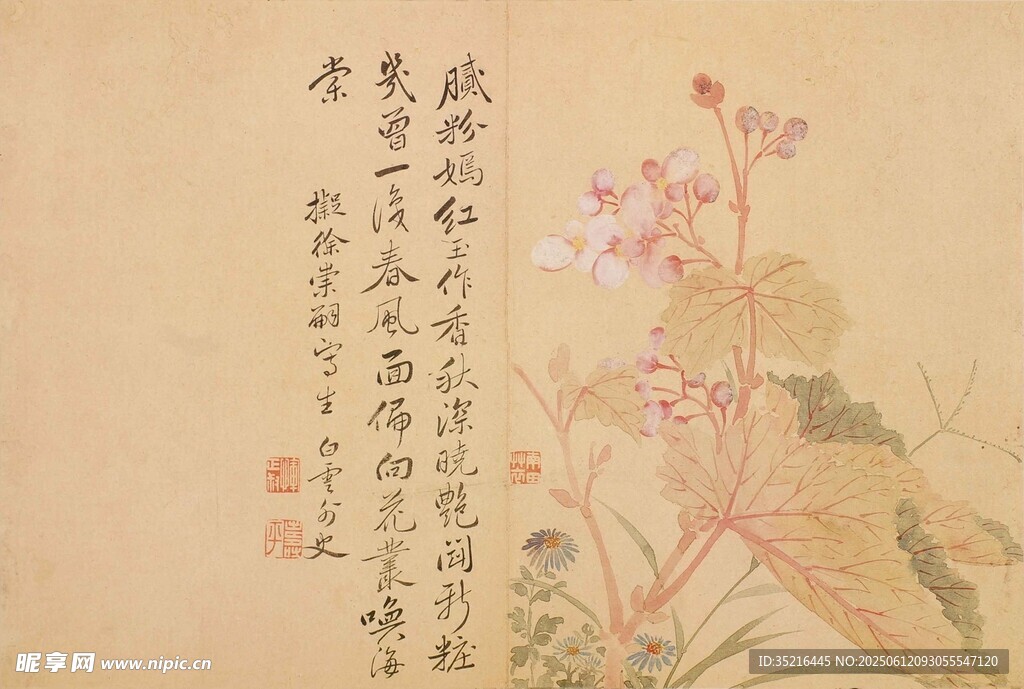 膩粉嫣紅玉作香秋深曉艷鬪新粧
幾曾一識春風面偏向花叢喚海
棠
擬徐崇嗣寫生 白雲外史
南田
昵享网 www.nipic.cn
ID:35216445 NO:20250612093055547120